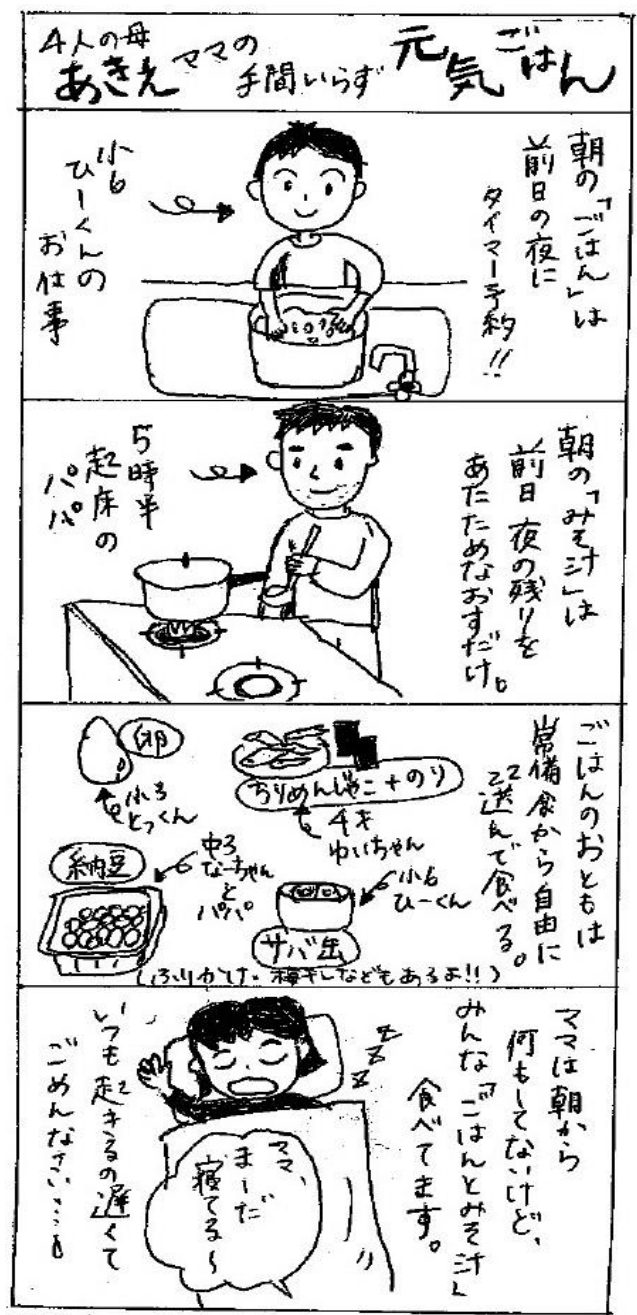 4人の母
あきえママの
手間いらず
元気ごはん
朝の「ごはん」は
前日の夜に
タイマー予約!!
小6
ひーくんの
お仕事
朝の「みそ汁」は
前日夜の残りを
あたためなおすだけ。
5時半
起床の
パパ
ごはんのおともは
常備食から自由に
選んで食べる。
ちりめんじゃこ+のり
4才
ゆいちゃん
卵
小3
とっくん
小6
ひーくん
サバ缶
中3
なーちゃん
と
パパ
納豆
(ふりかけ・梅干しなどもあるよ!!)
ママは朝から
何もしてないけど、
みんな「ごはんとみそ汁」
食べてます。
ママ、
まーだ
寝てる〜
zzz
いつも起きるの遅くて
ごめんなさい…。